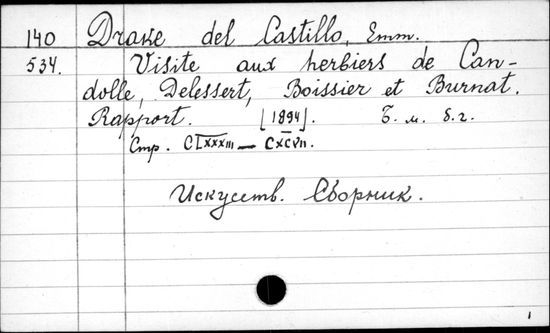 140 Drake del Castillo, Emm.
534. Visite aux herbiers de Can-
dolle, Delessert, Boissier et Burnat.
Rapport. [1894]. Б. м. б. г.
Стр. CLXXXIII — CXCVII.
Искусств. Сборник.
1